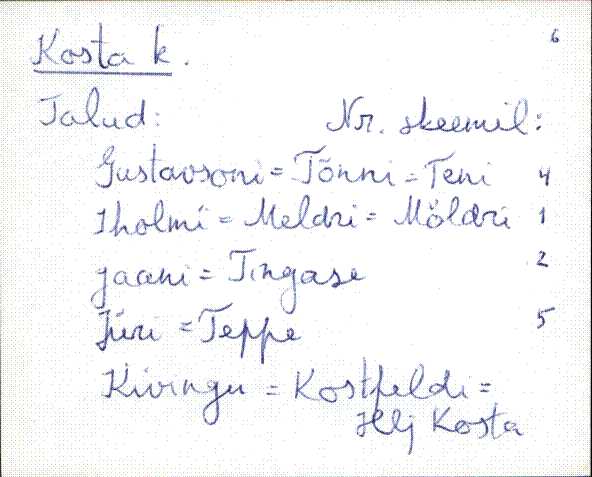 6
Kosta k.
Talud: Nr. skeemil:
Gustavsoni = Tõnni = Teni 4
Iholmi = Meldri = Möldri 1
Jaani = Tingase 2
Jüri = Teppe 5
Kivingu = Kostfeldi =
Kosta